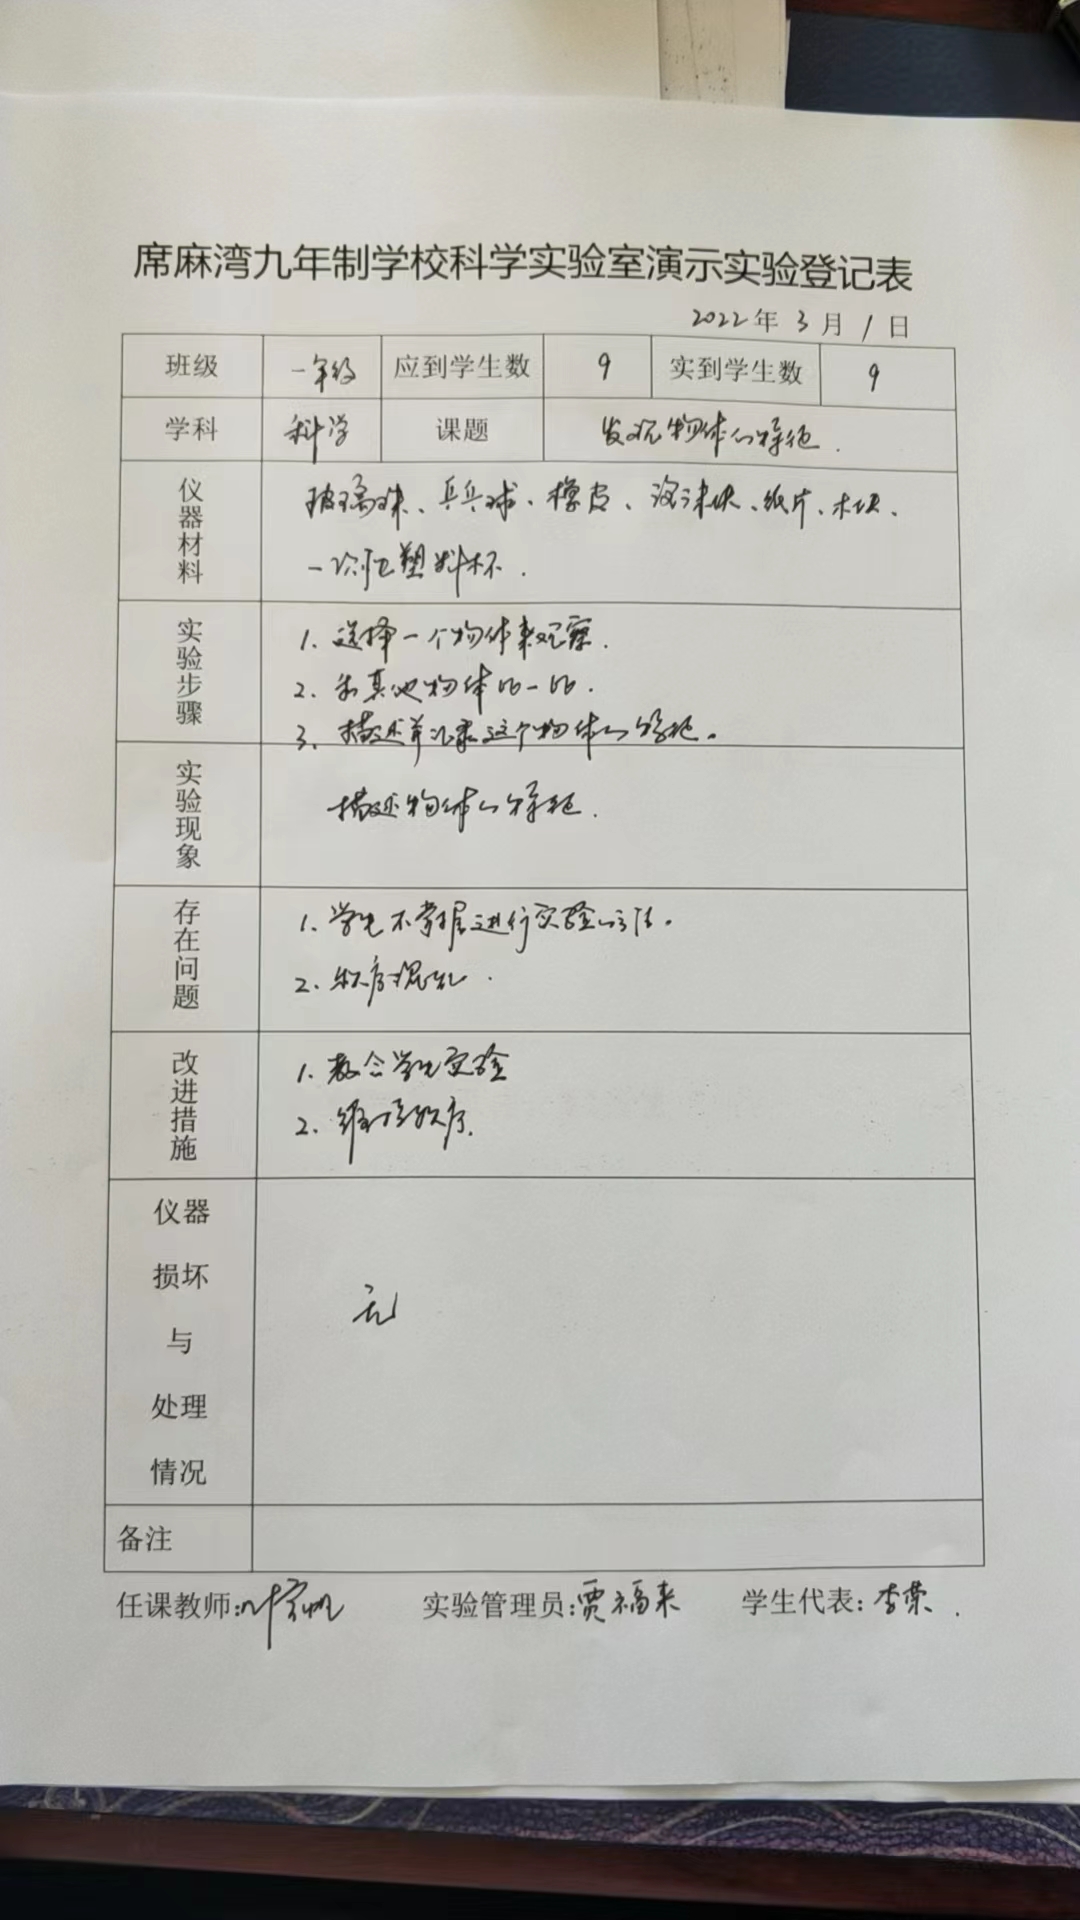 席麻湾九年制学校科学实验室演示实验登记表
2022年 3月 1日
班级 一年级 应到学生数 9 实到学生数 9
学科 科学 课题 发现物体的特征.
仪器材料 玻璃珠、乒乓球、橡皮、泡沫块、纸片、木块、
一次性塑料杯.
实验步骤 1. 选择一个物体来观察.
2. 和其他物体比一比.
3. 描述并记录这个物体的特征。
实验现象 描述物体的特征.
存在问题 1. 学生不掌握进行实验的方法。
2. 秩序混乱.
改进措施 1. 教会学生实验
2. 维持秩序.
仪器
损坏
与
处理
情况
无
备注
任课教师:叶 实验管理员:贾福来 学生代表:李荣.